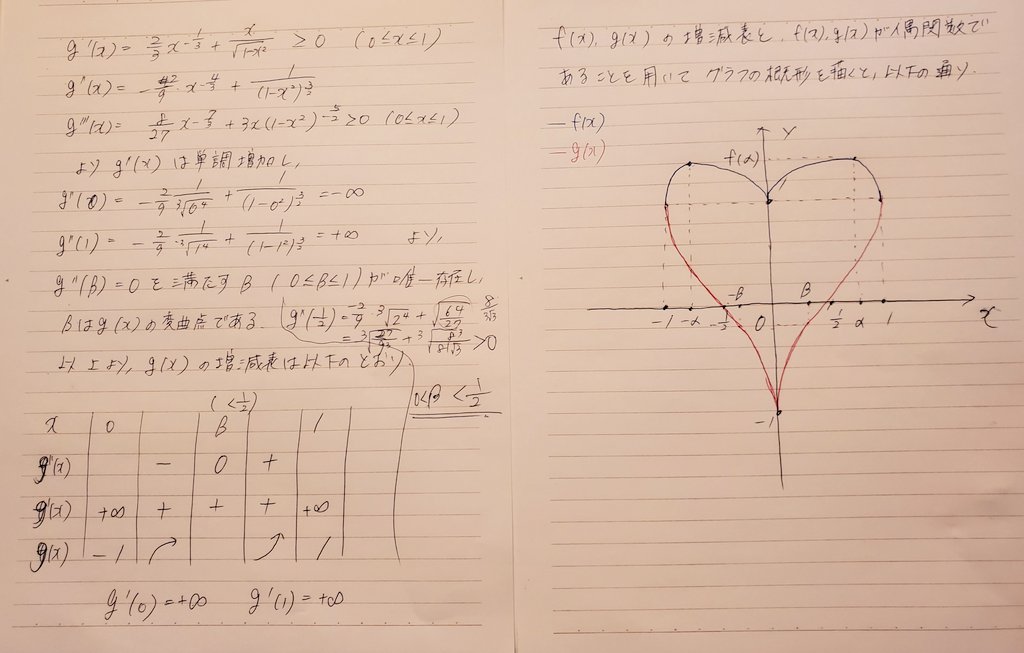 g'(x) = 2/3 x^{-1/3} + x/√(1-x²) ≥ 0 (0≤x≤1)
g''(x) = -2/9 · x^{-4/3} + 1/(1-x²)^{3/2}
g'''(x) = 8/27 x^{-7/3} + 3x(1-x²)^{-5/2} ≥ 0 (0≤x≤1)
より g''(x) は単調増加し,
g''(0) = -2/9 1/³√0⁴ + 1/(1-0²)^{3/2} = -∞
g''(1) = -2/9 · 1/³√1⁴ + 1/(1-1²)^{3/2} = +∞ より,
g''(β) = 0 を満たす β (0≤β≤1) が唯一存在し,
βは g(x) の変曲点である.
g''(1/2) = -2/9 · ³√2⁴ + √(64/27) 8/3√3
>0
以上より, g(x) の増減表は以下のとおり
0<β<1/2
(<1/2)
x 0 β 1
g''(x) - 0 +
g'(x) +∞ + + + +∞
g(x) -1 1
g'(0) = +∞ g'(1) = +∞
f(x), g(x) の増減表と, f(x), g(x) が偶関数で
あることを用いて グラフの概形を描くと, 以下の通り.
— f(x)
— g(x)
y
f(α)
-1 -α -1/2 -β 0 β 1/2 α 1 x
-1